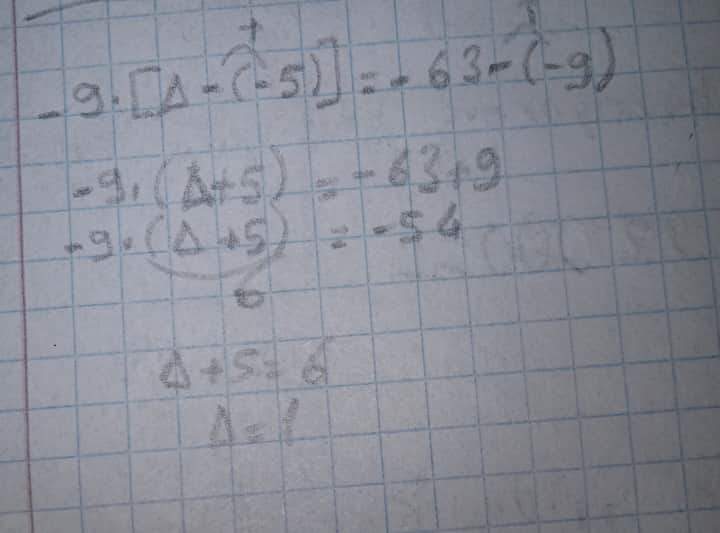 +
-9·[Δ-(-5)]=-63-(-9)
-9·(Δ+5)=-63+9
-9·(Δ+5)=-54
6
Δ+5=6
Δ=1